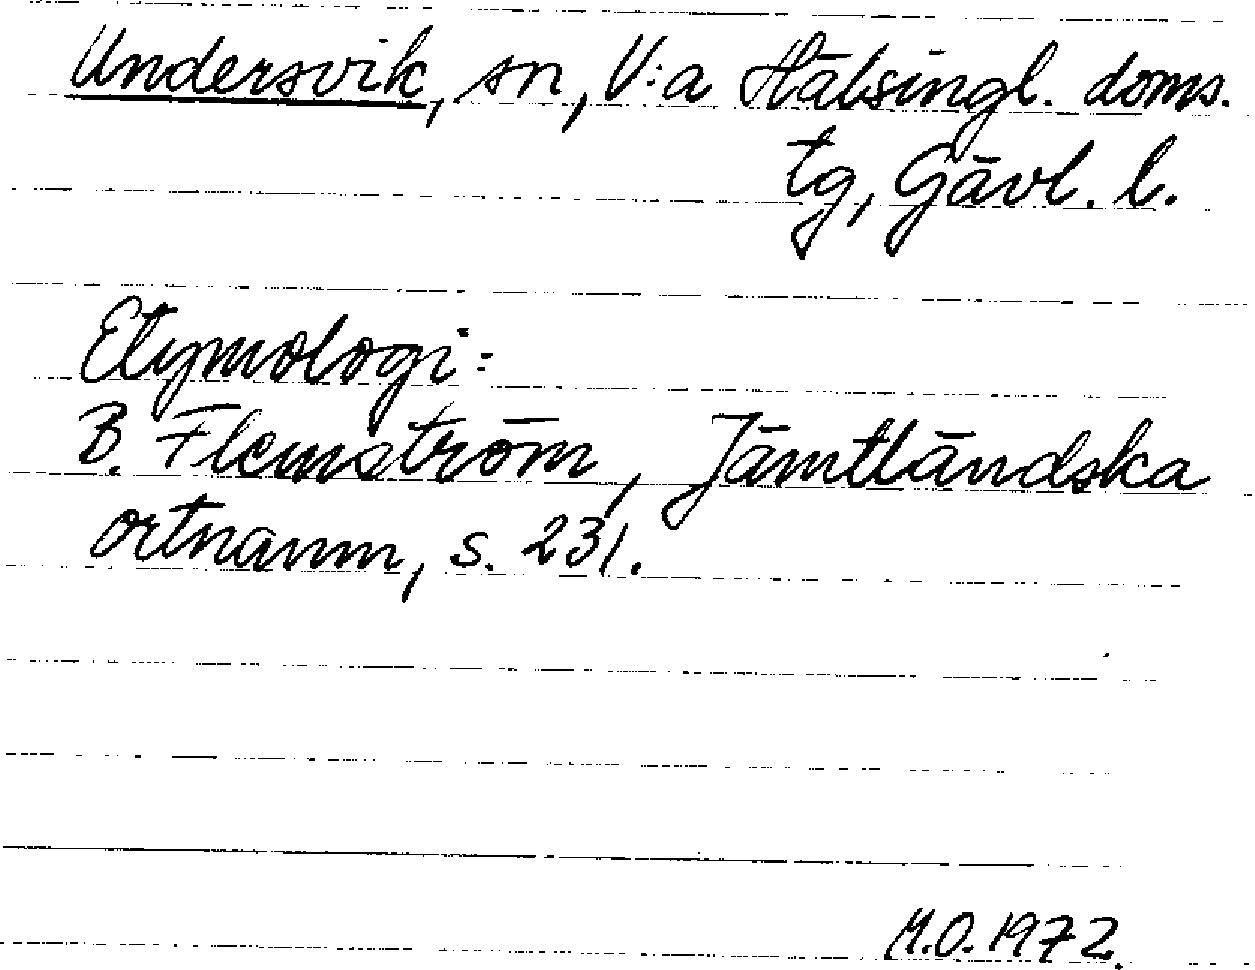 Undersvik, sn, V:a Hälsingl. doms.
tg, Gävl. l.
Etymologi:
B. Flemström, Jämtländska
ortnamn, s. 231.
M.O. 1972.